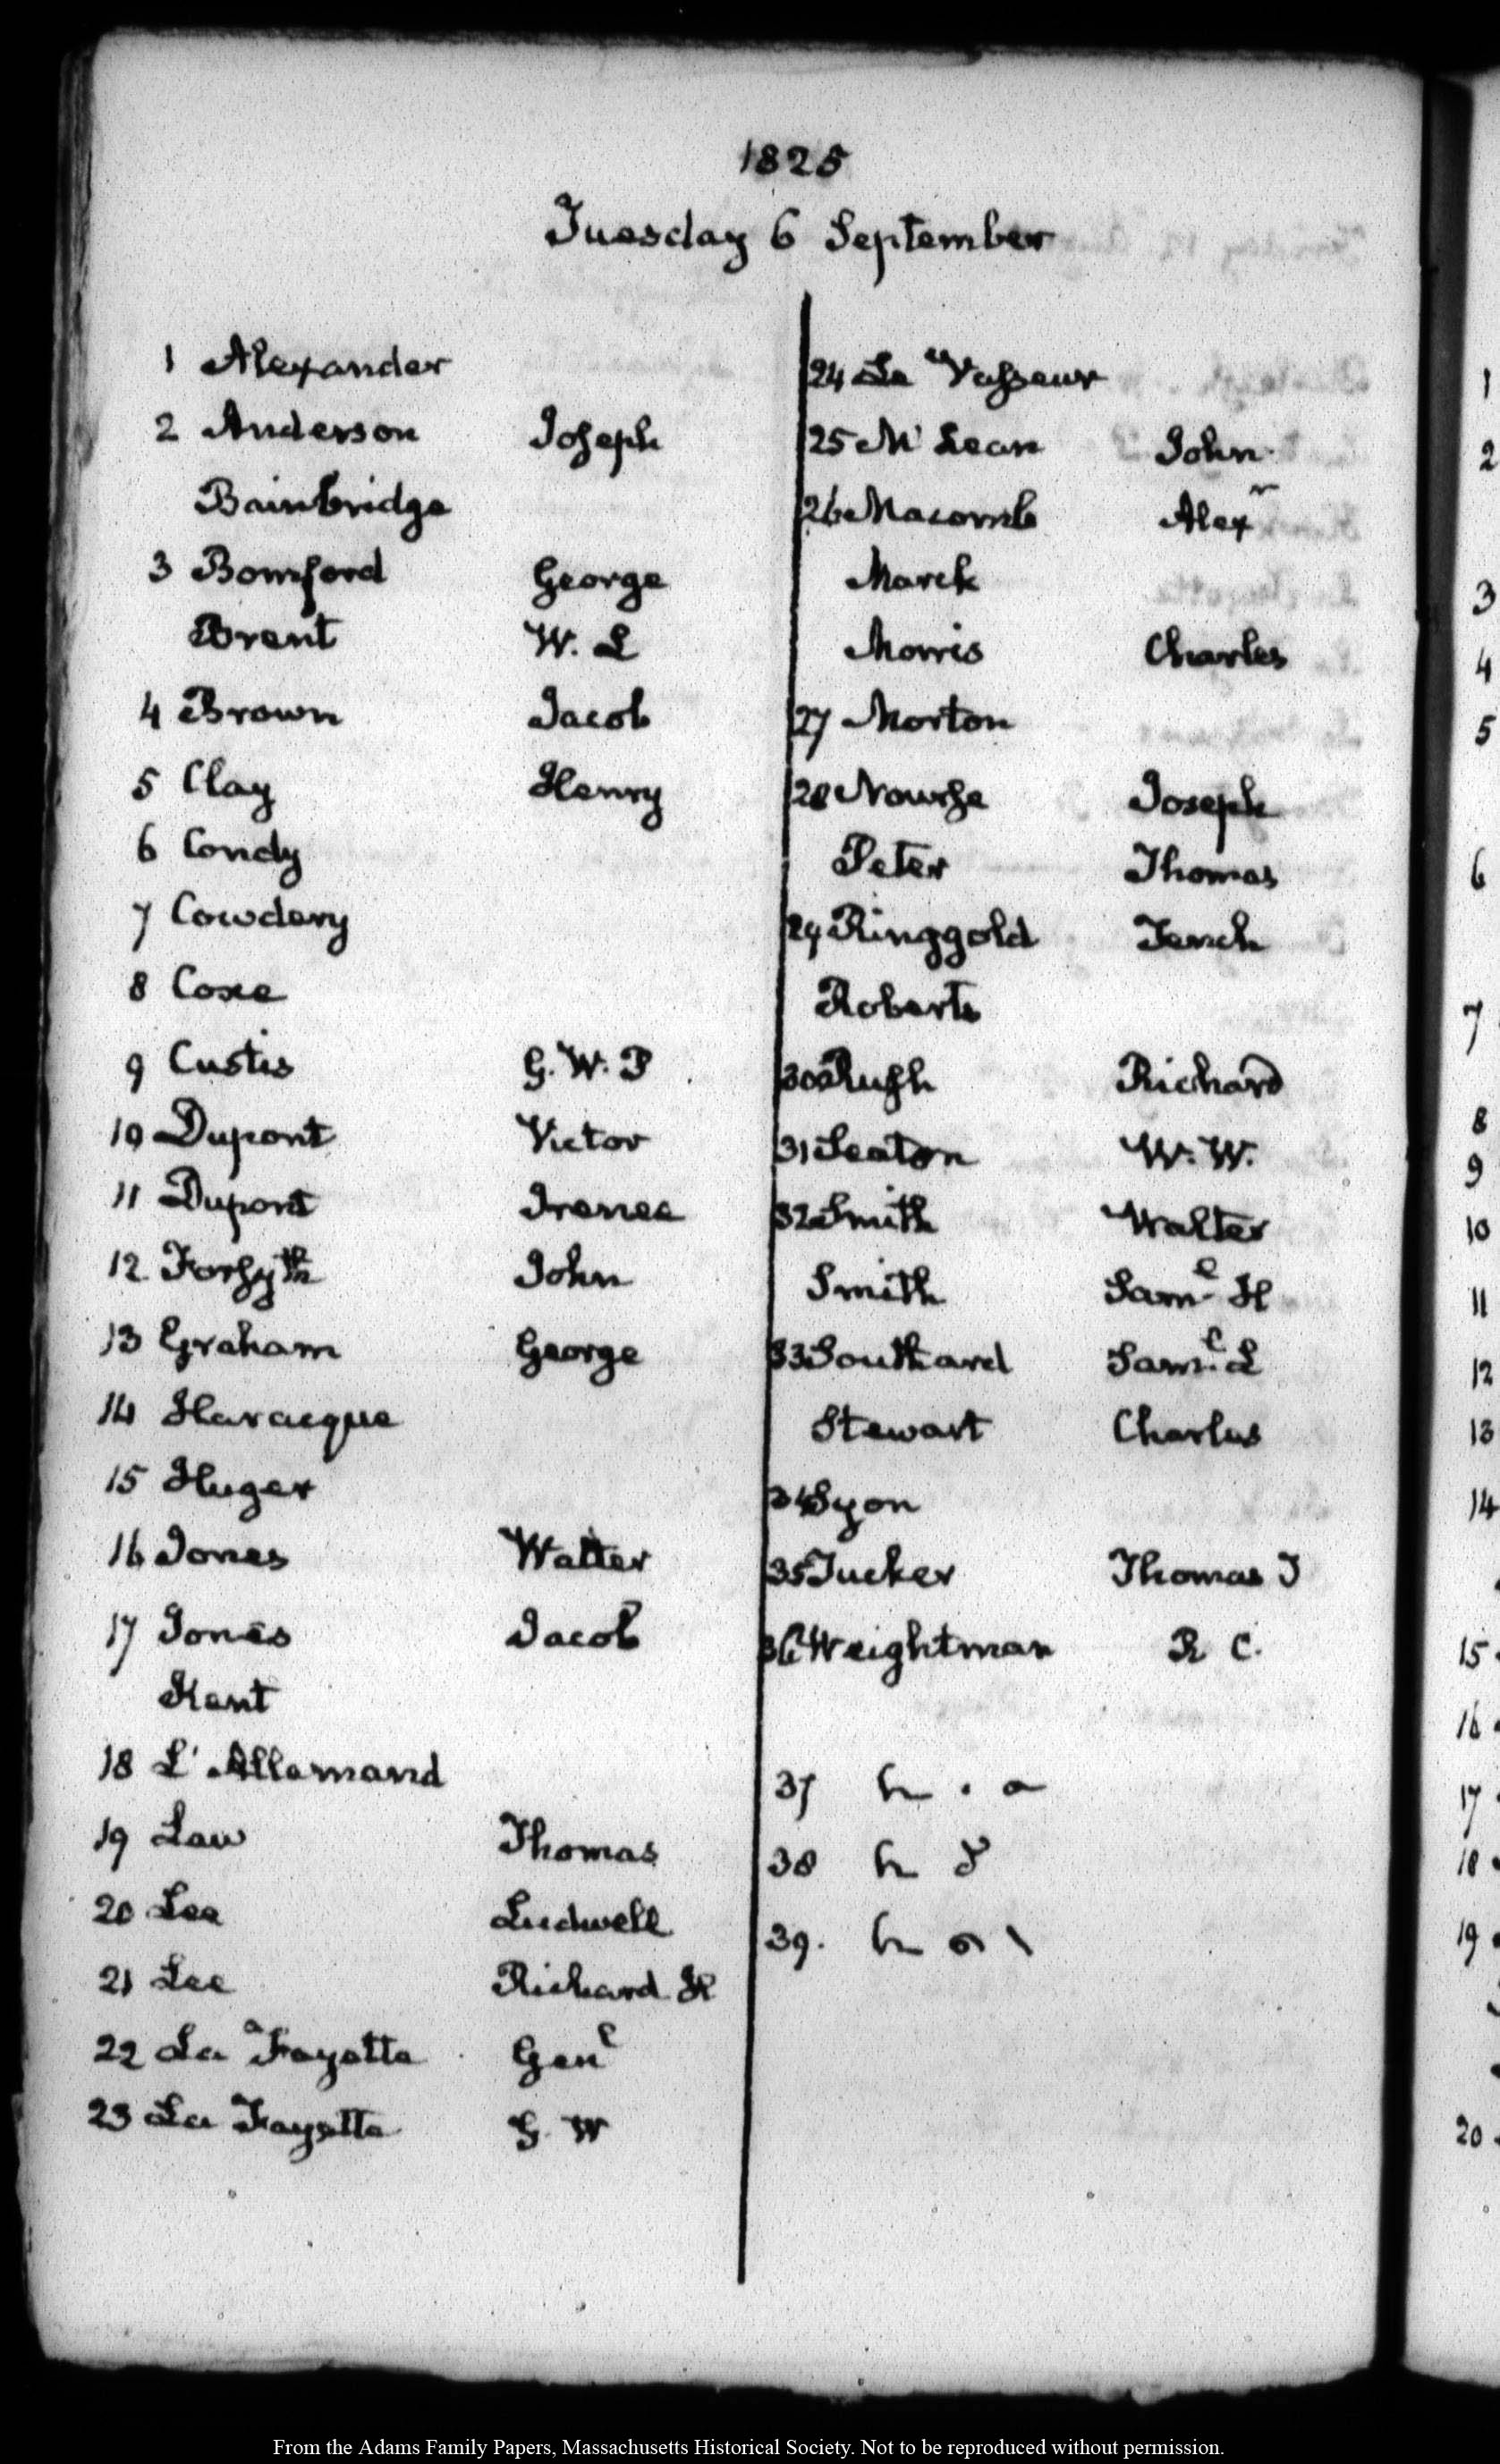 1825
Tuesday 6 September
1 Alexander
2 Anderson Joseph
Bainbridge
3 Bomford George
Brent W. L
4 Brown Jacob
5 Clay Henry
6 Condy
7 Cowdery
8 Coxe
9 Custis G. W. P
10 Dupont Victor
11 Dupont Irenee
12 Forsyth John
13 Graham George
14 Haracque
15 Huger
16 Jones Walter
17 Jones Jacob
Kent
18 L'Allemand
19 Law Thomas
20 Lee Ludwell
21 Lee Richard H
22 La Fayette Genl
23 La Fayette G. W
24 Le Vasseur
25 McLean John
26 Macomb Alexr
Marck
Morris Charles
27 Morton
28 Nourse Joseph
Peter Thomas
29 Ringgold Tench
Roberts
30 Rush Richard
31 Seaton W. W.
32 Smith Walter
Smith Saml H
33 Southard Saml L
Stewart Charles
34 Syon
35 Tucker Thomas T
36 Weightman R C.
37
38
39.
1
2
3
4
5
6
7
8
9
10
11
12
13
14
15
16
17
18
19
20
From the Adams Family Papers, Massachusetts Historical Society. Not to be reproduced without permission.